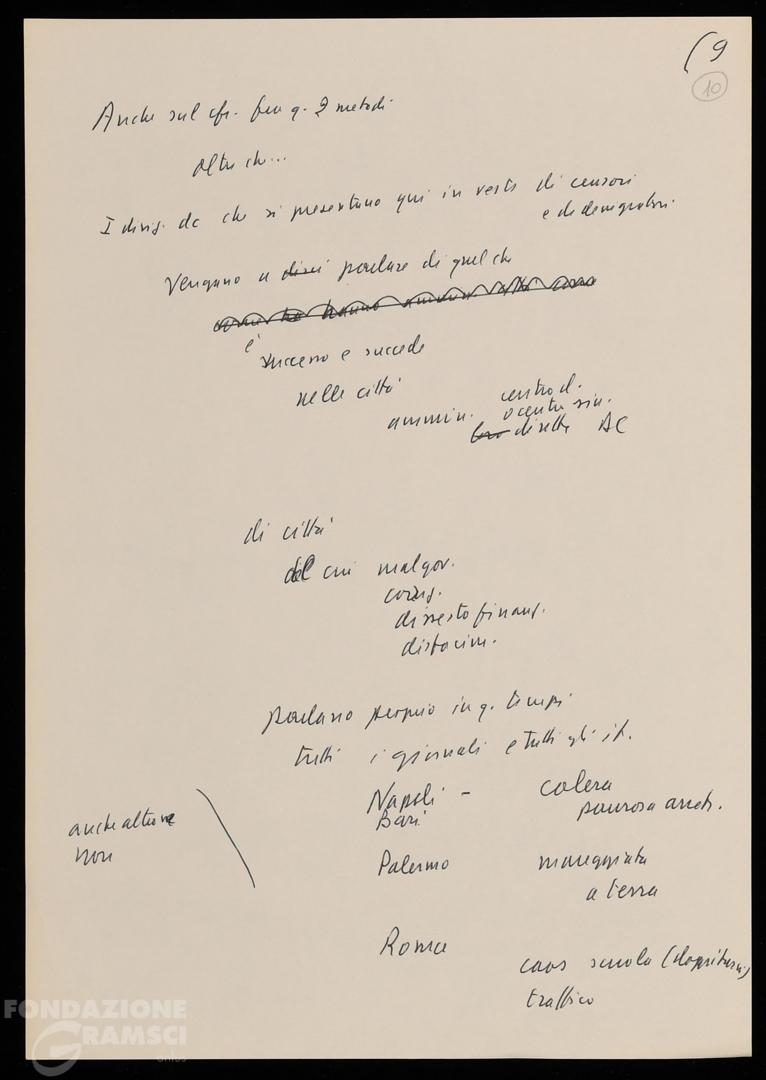 (9
10
Anche sul cfr. fra q. 2 metodi
Oltre che...
I dirig. dc che si presentano qui in veste di censori
e di denigratori.
Vengano a dirci parlare di quel che
è
successo e succede
nelle città
ammin. centro d.
o centro sin.
loro dirette AC
di città
del cui malgov.
corruz.
dissesto finanz.
disfacim.
parlano proprio in q. tempi
tutti i giornali e tutti gli it.
Napoli - colera
Bari paurosa arretr.
anche altrove
non
Palermo mareggiata
a terra
Roma
caos scuola (doppi turni)
traffico
FONDAZIONE
GRAMSCI
onlus